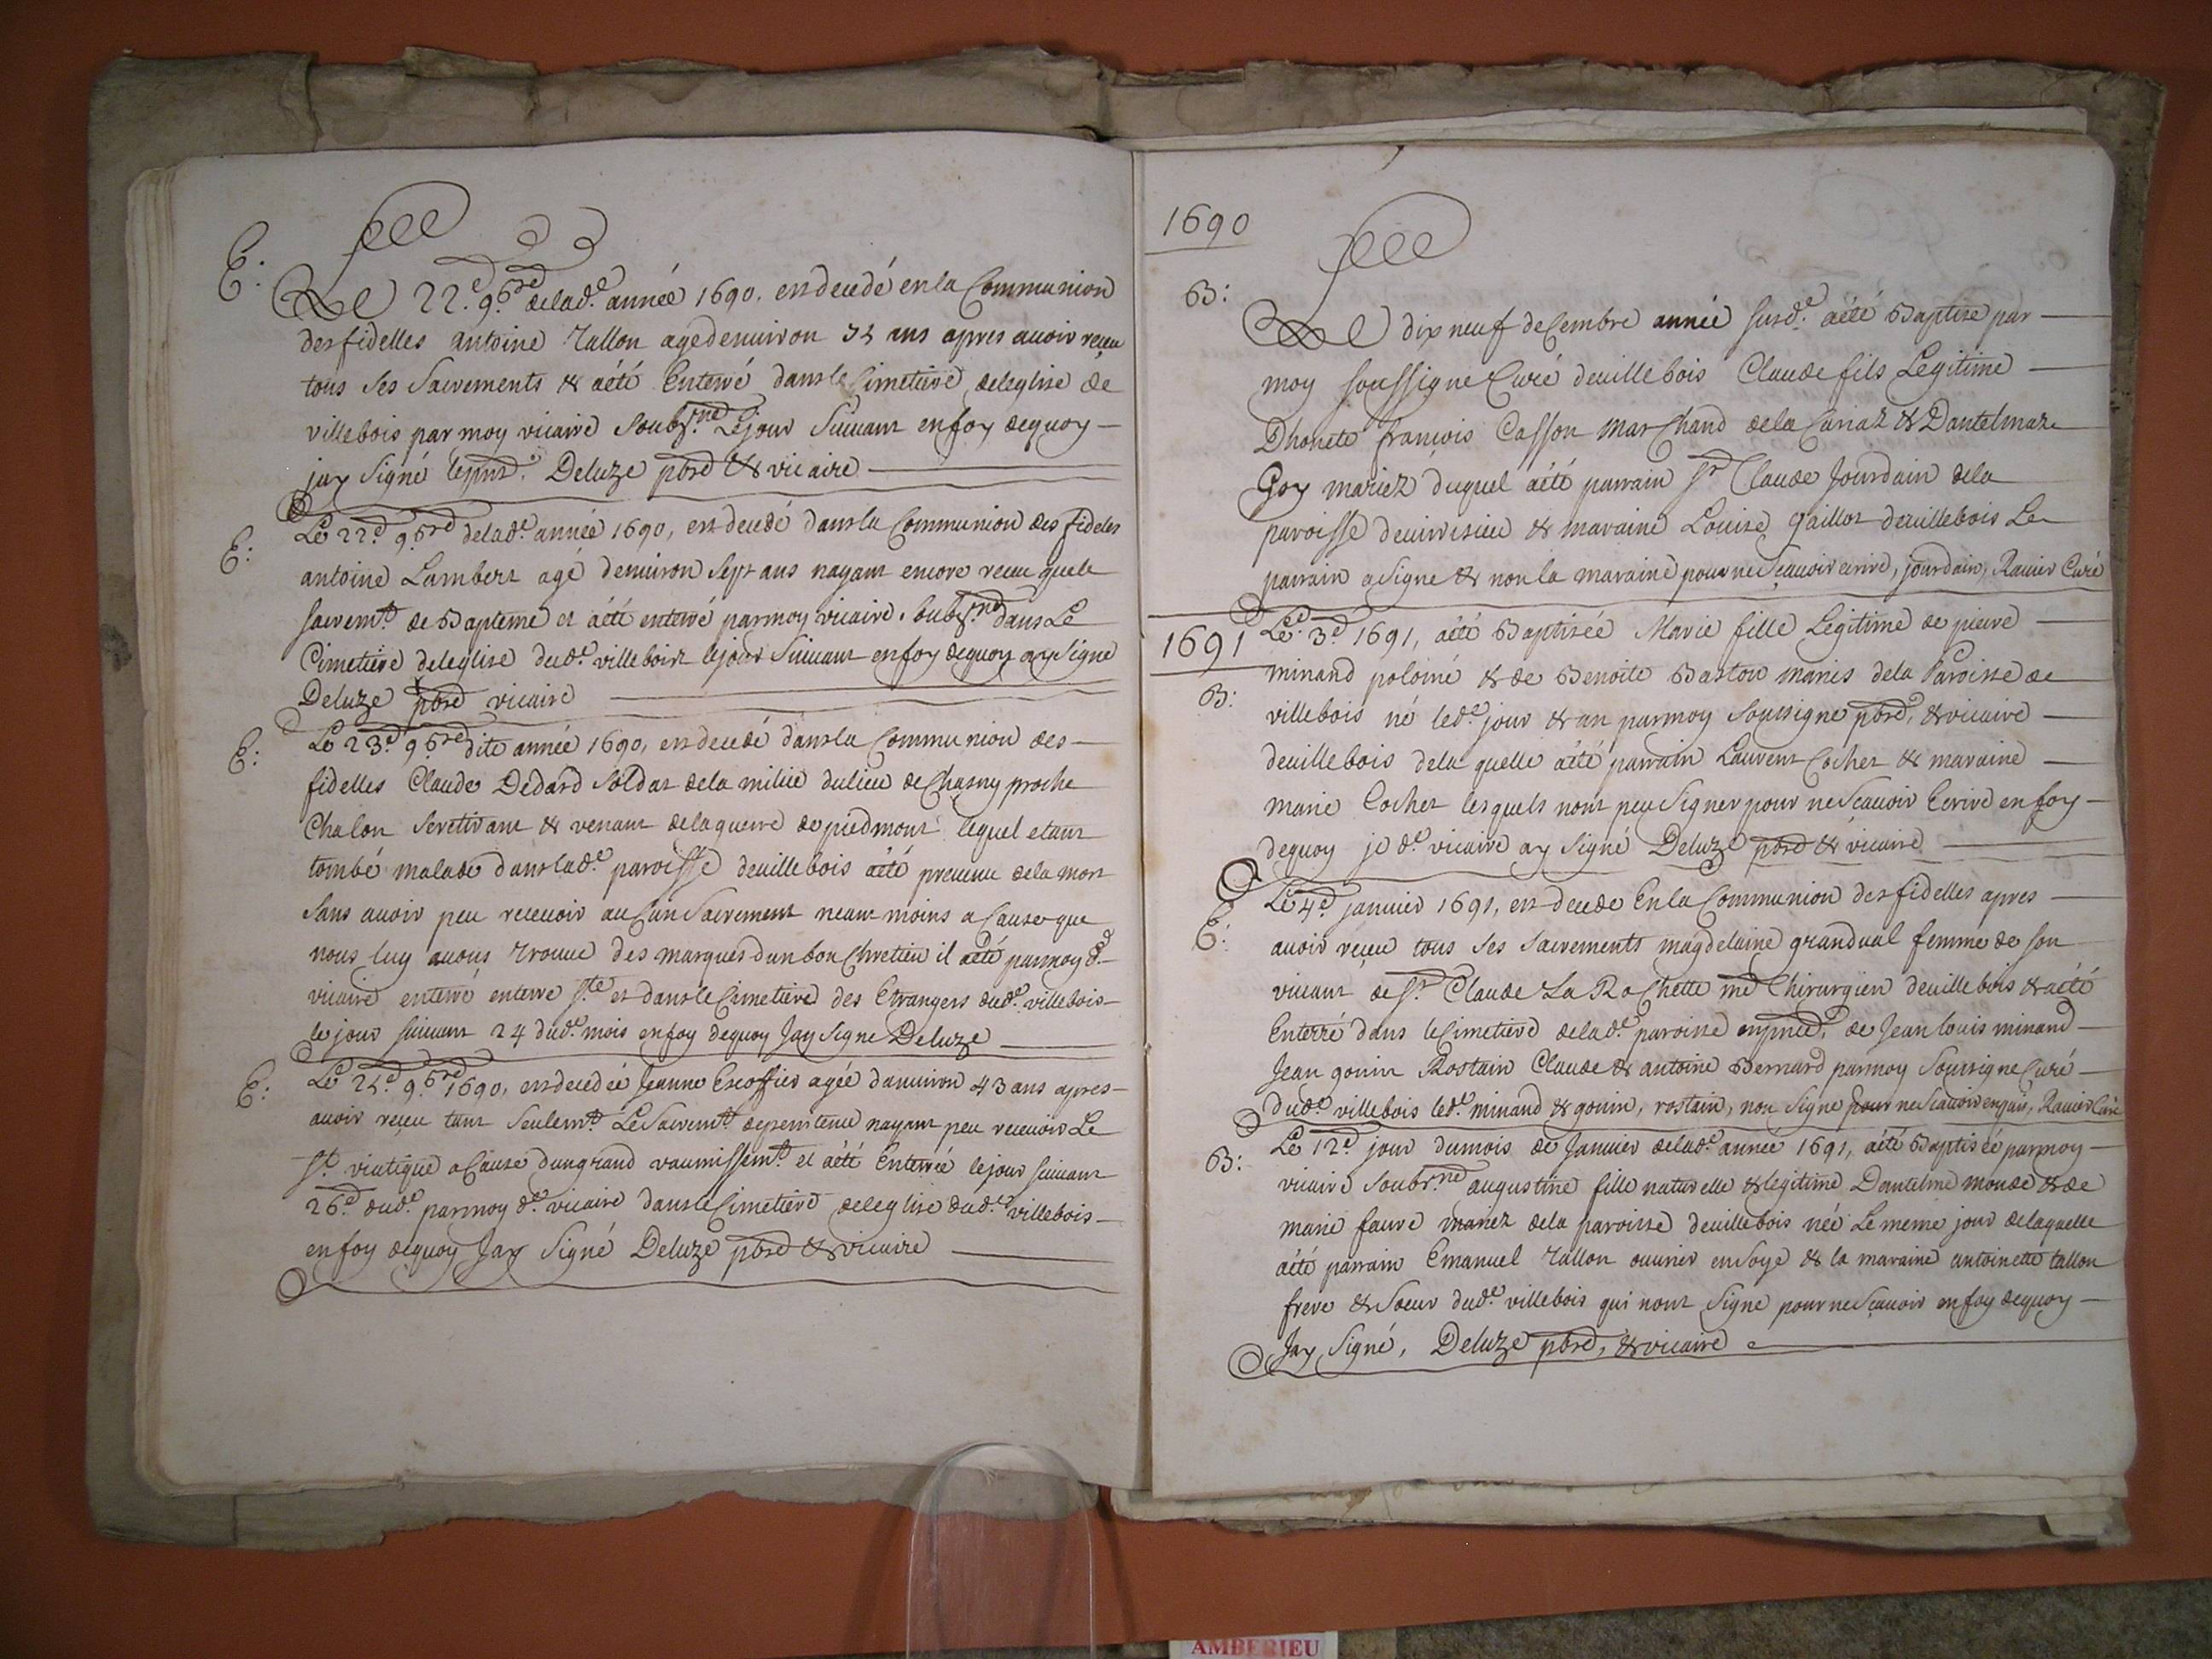 E:
Le 22.e 9.bre delad.e année 1690. est decedé en la Communion
des fidelles antoine Tallon agé denuiron 32 ans apres auoir reçeu
tous ses Sacrements & aété Enterré dans le Cimetiere deleglise de
villebois par moy vicaire Soubs.né Le jour Suiuant en foy dequoy
jay Signé lepnt. Deluze pbre & vicaire
E:
Le 22.e 9.bre delad.e année 1690, est decedé dans la Communion des fideles
antoine Lambert agé denuiron Sept ans nayant encore receu quele
sacrem.t de Bapteme et aété enterré parmoy vicaire Soubs.né dans Le
Cimetiere deleglise dud.e villebois lejour Suiuant enfoy dequoy ay Signé
Deluze pbre vicaire
E:
Le 23.e 9.bre dite année 1690, est decedé dans la Communion des
fidelles Claude Dedard Soldat dela milice dulieu de Chagny proche
Chalon Seretirant & venant delaguerre de piedmont lequel etant
tombé malade dans lad.e paroisse deuillebois aété preuenu dela mort
Sans auoir peu receuoir auCun Sacrement neant moins a Cause que
nous luy auons trouué des marques dun bon Chretien il aété parmoy d.
vicaire enterré enterre S.te et dans le Cimetiere des Etrangers dud.e villebois
le jour suiuant 24 dud.e mois enfoy dequoy Jay Signe Deluze
E:
Le 25.e 9.bre 1690, est decedée Jeanne Escoffier agée danuiron 43 ans apres
auoir reçeu tant Seulem.t Le Sacrem.t depenitence nayant peu receuoir Le
S.t viatique a Cause dungrand vaumissem.t et aété Enterrée lejour suiuant
26.e dud.e parmoy d.e vicaire dans le Cimetiere deleglise dud.e villebois
enfoy dequoy Jay Signé Deluze pbre & vicaire
1690
B:
Le dix neuf deCembre année susd.e aété Baptisé par
moy soussigne Curé deuillebois Claude fils Legitime
Dhonete françois Casson marChand dela Cariaz & Dantelmaze
Goy mariez duquel aété parrain S.r Claude Jourdain dela
paroisse deuirisieu & maraine Louise gaillot deuillebois Le
parrain a Signe & non la maraine pour ne Sçauoir ecrire, jourdain, Rauier Curé
1691
B:
Le 3.e 1691, aété Baptisée Marie fille Legitime de pierre
minand poloiné & de Benoite Baston mariés dela Paroisse de
villebois né led.e jour & an parmoy Soussigne pbre, & vicaire
deuillebois dela quelle aété parrain Laurent Cochet & maraine
marie Cochet lesquels nont peu Signer pour ne Scauoir Ecrire en foy
dequoy je d.e vicaire ay Signé Deluze pbre & vicaire
E:
Le 4.e januier 1691, est decede En la Communion des fidelles apres
auoir reçeu tous ses sacrements magdelaine granduel femme de son
viuant de S.r Claude La RoChette me Chirurgien deuillebois & aété
Enterré dans le Cimetiere delad.e paroisse enpnce, de Jean louis minand
Jean gonin Rostain Claude & antoine Bernard parmoy Soussigne Curé
dud.e villebois led.e minand & gonin, rostain, non Signe pour ne Scauoir enquis, Rauier Curé
B:
Le 12.e jour dumois de Januier delad.e année 1691, aété Baptisée parmoy
vicaire Soubs.né augustine fille naturelle & legitime Dantelme monde & de
marie faure mariez dela paroisse deuillebois née Le meme jour delaquelle
aété parrain Emanuel Tallon ouurier ensoye & la maraine antoinette tallon
frere & Soeur dud.e villebois qui nont Signe pour ne Sçauoir en foy dequoy
Jay Signé, Deluze pbre, & vicaire
AMBERIEU